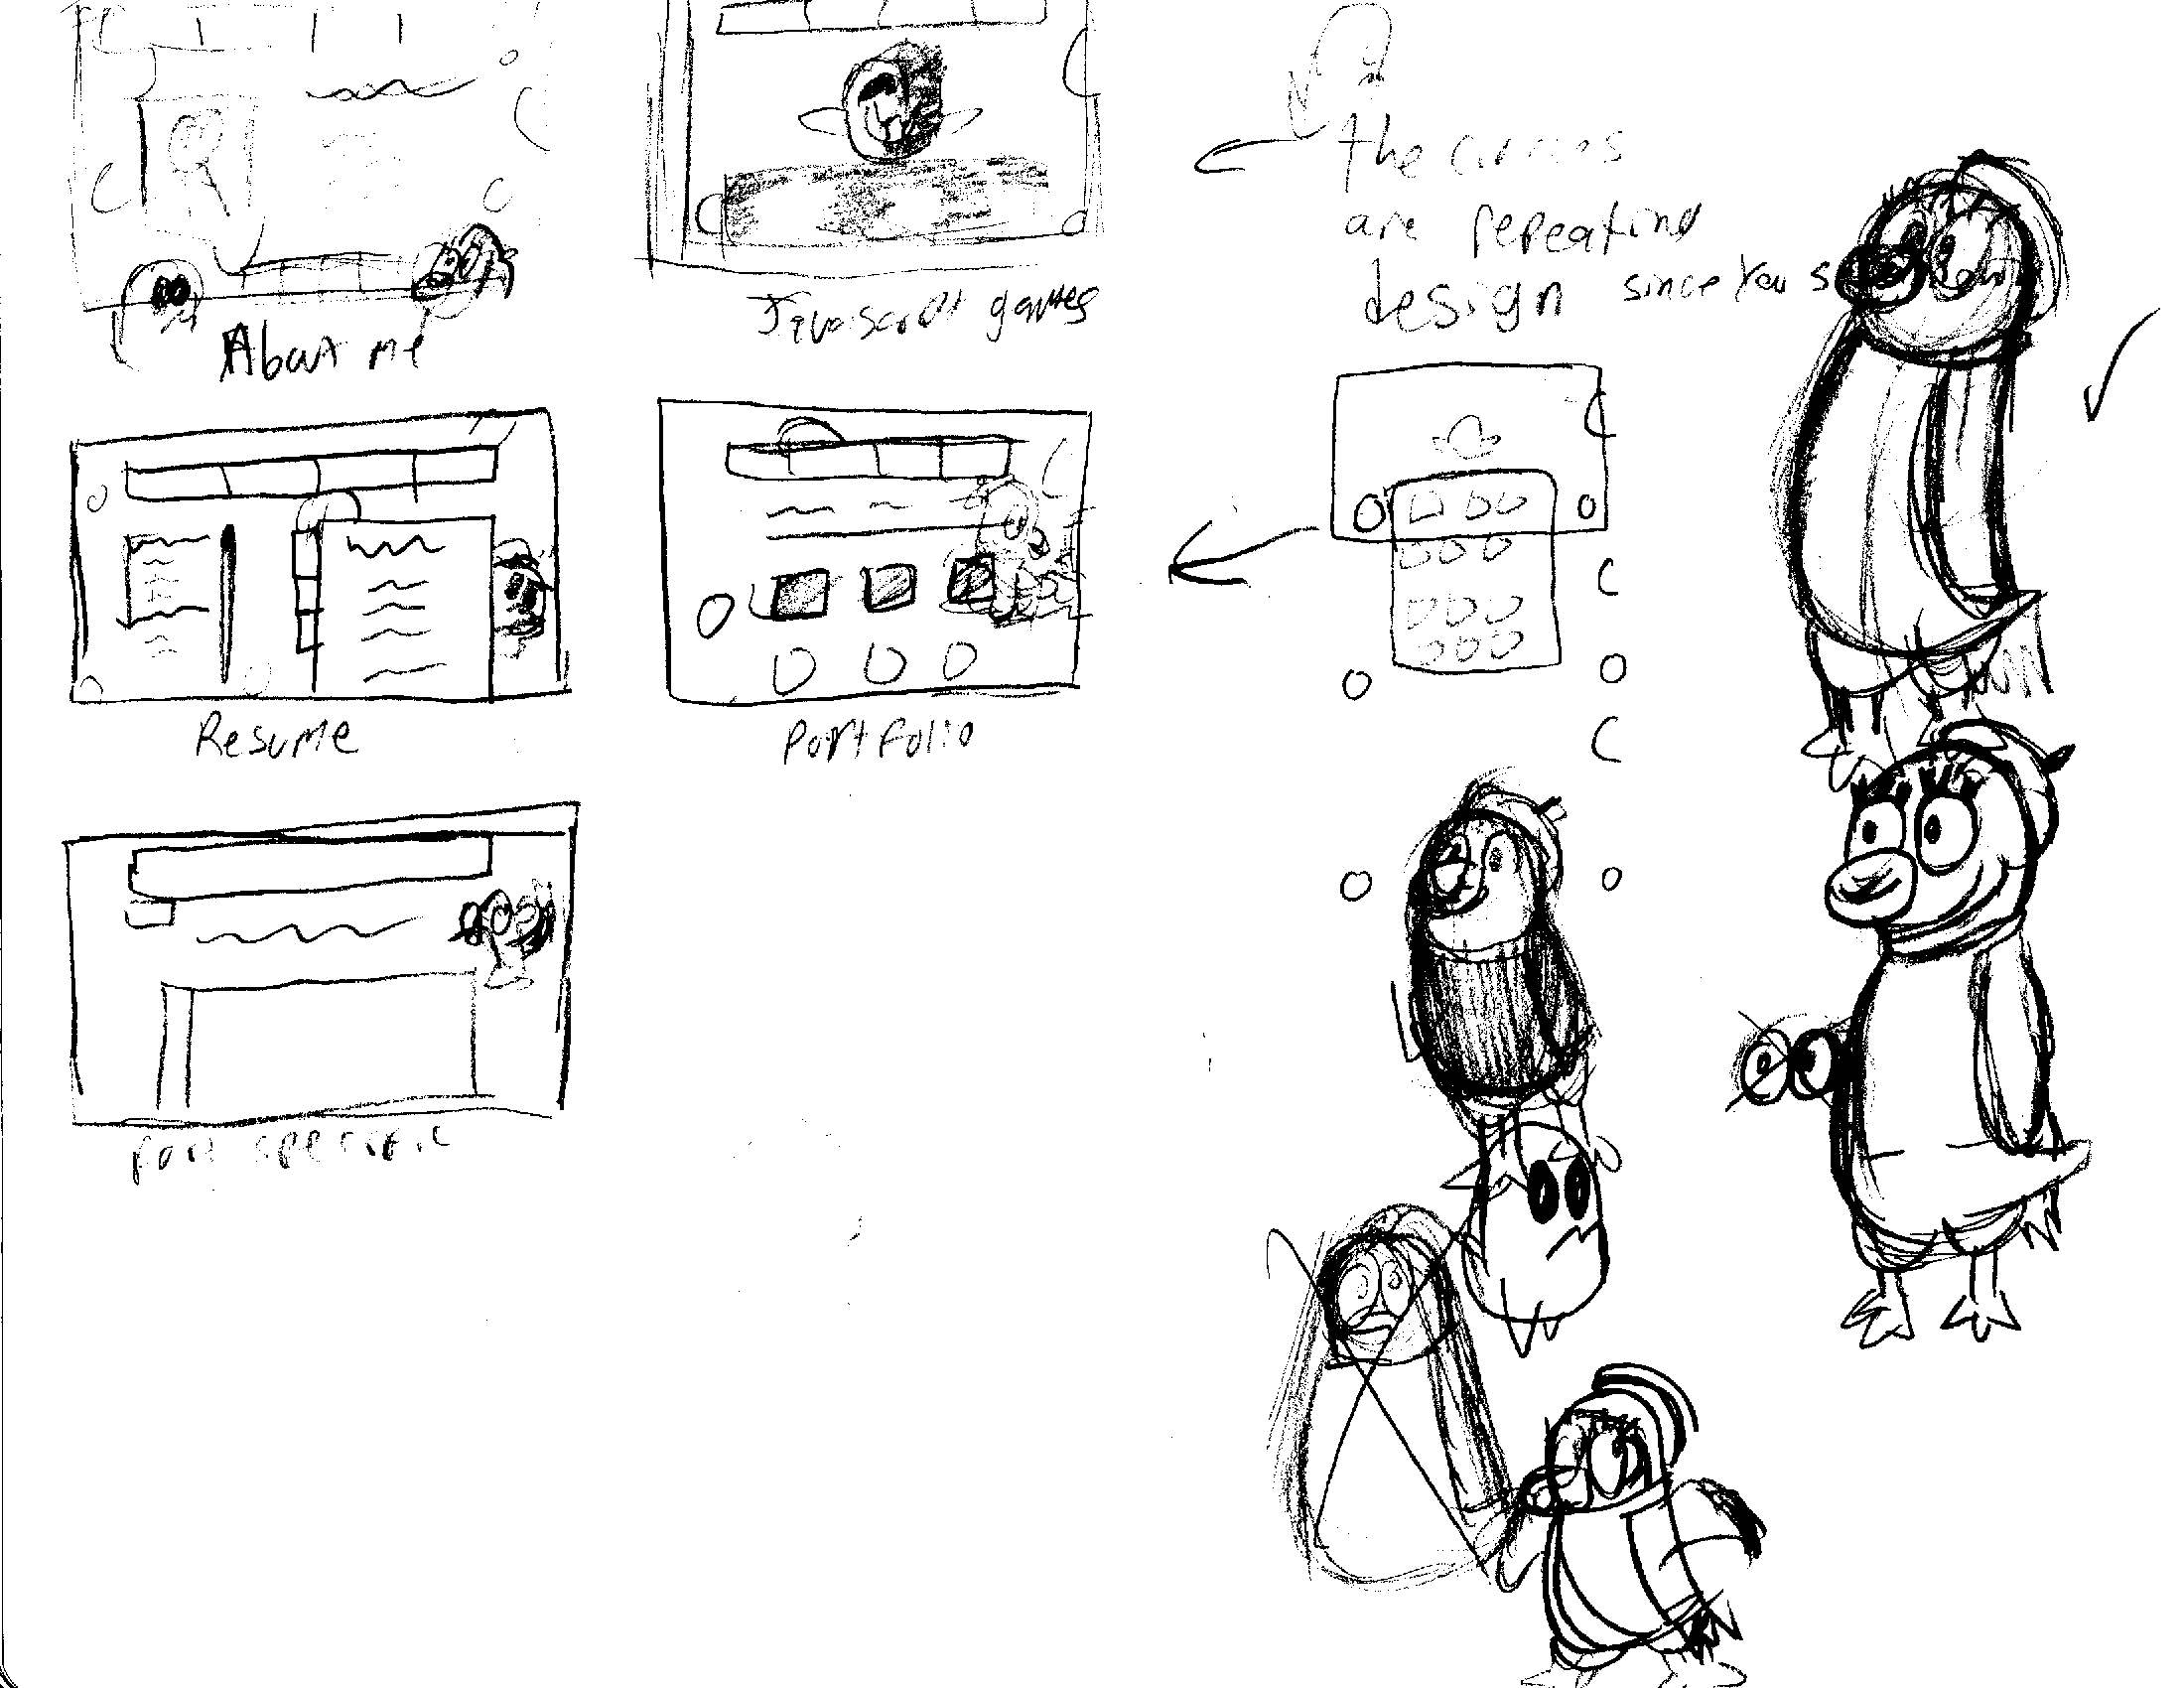 About me
Javascript games
the circles
are repeating
design since you
Resume
Portfolio